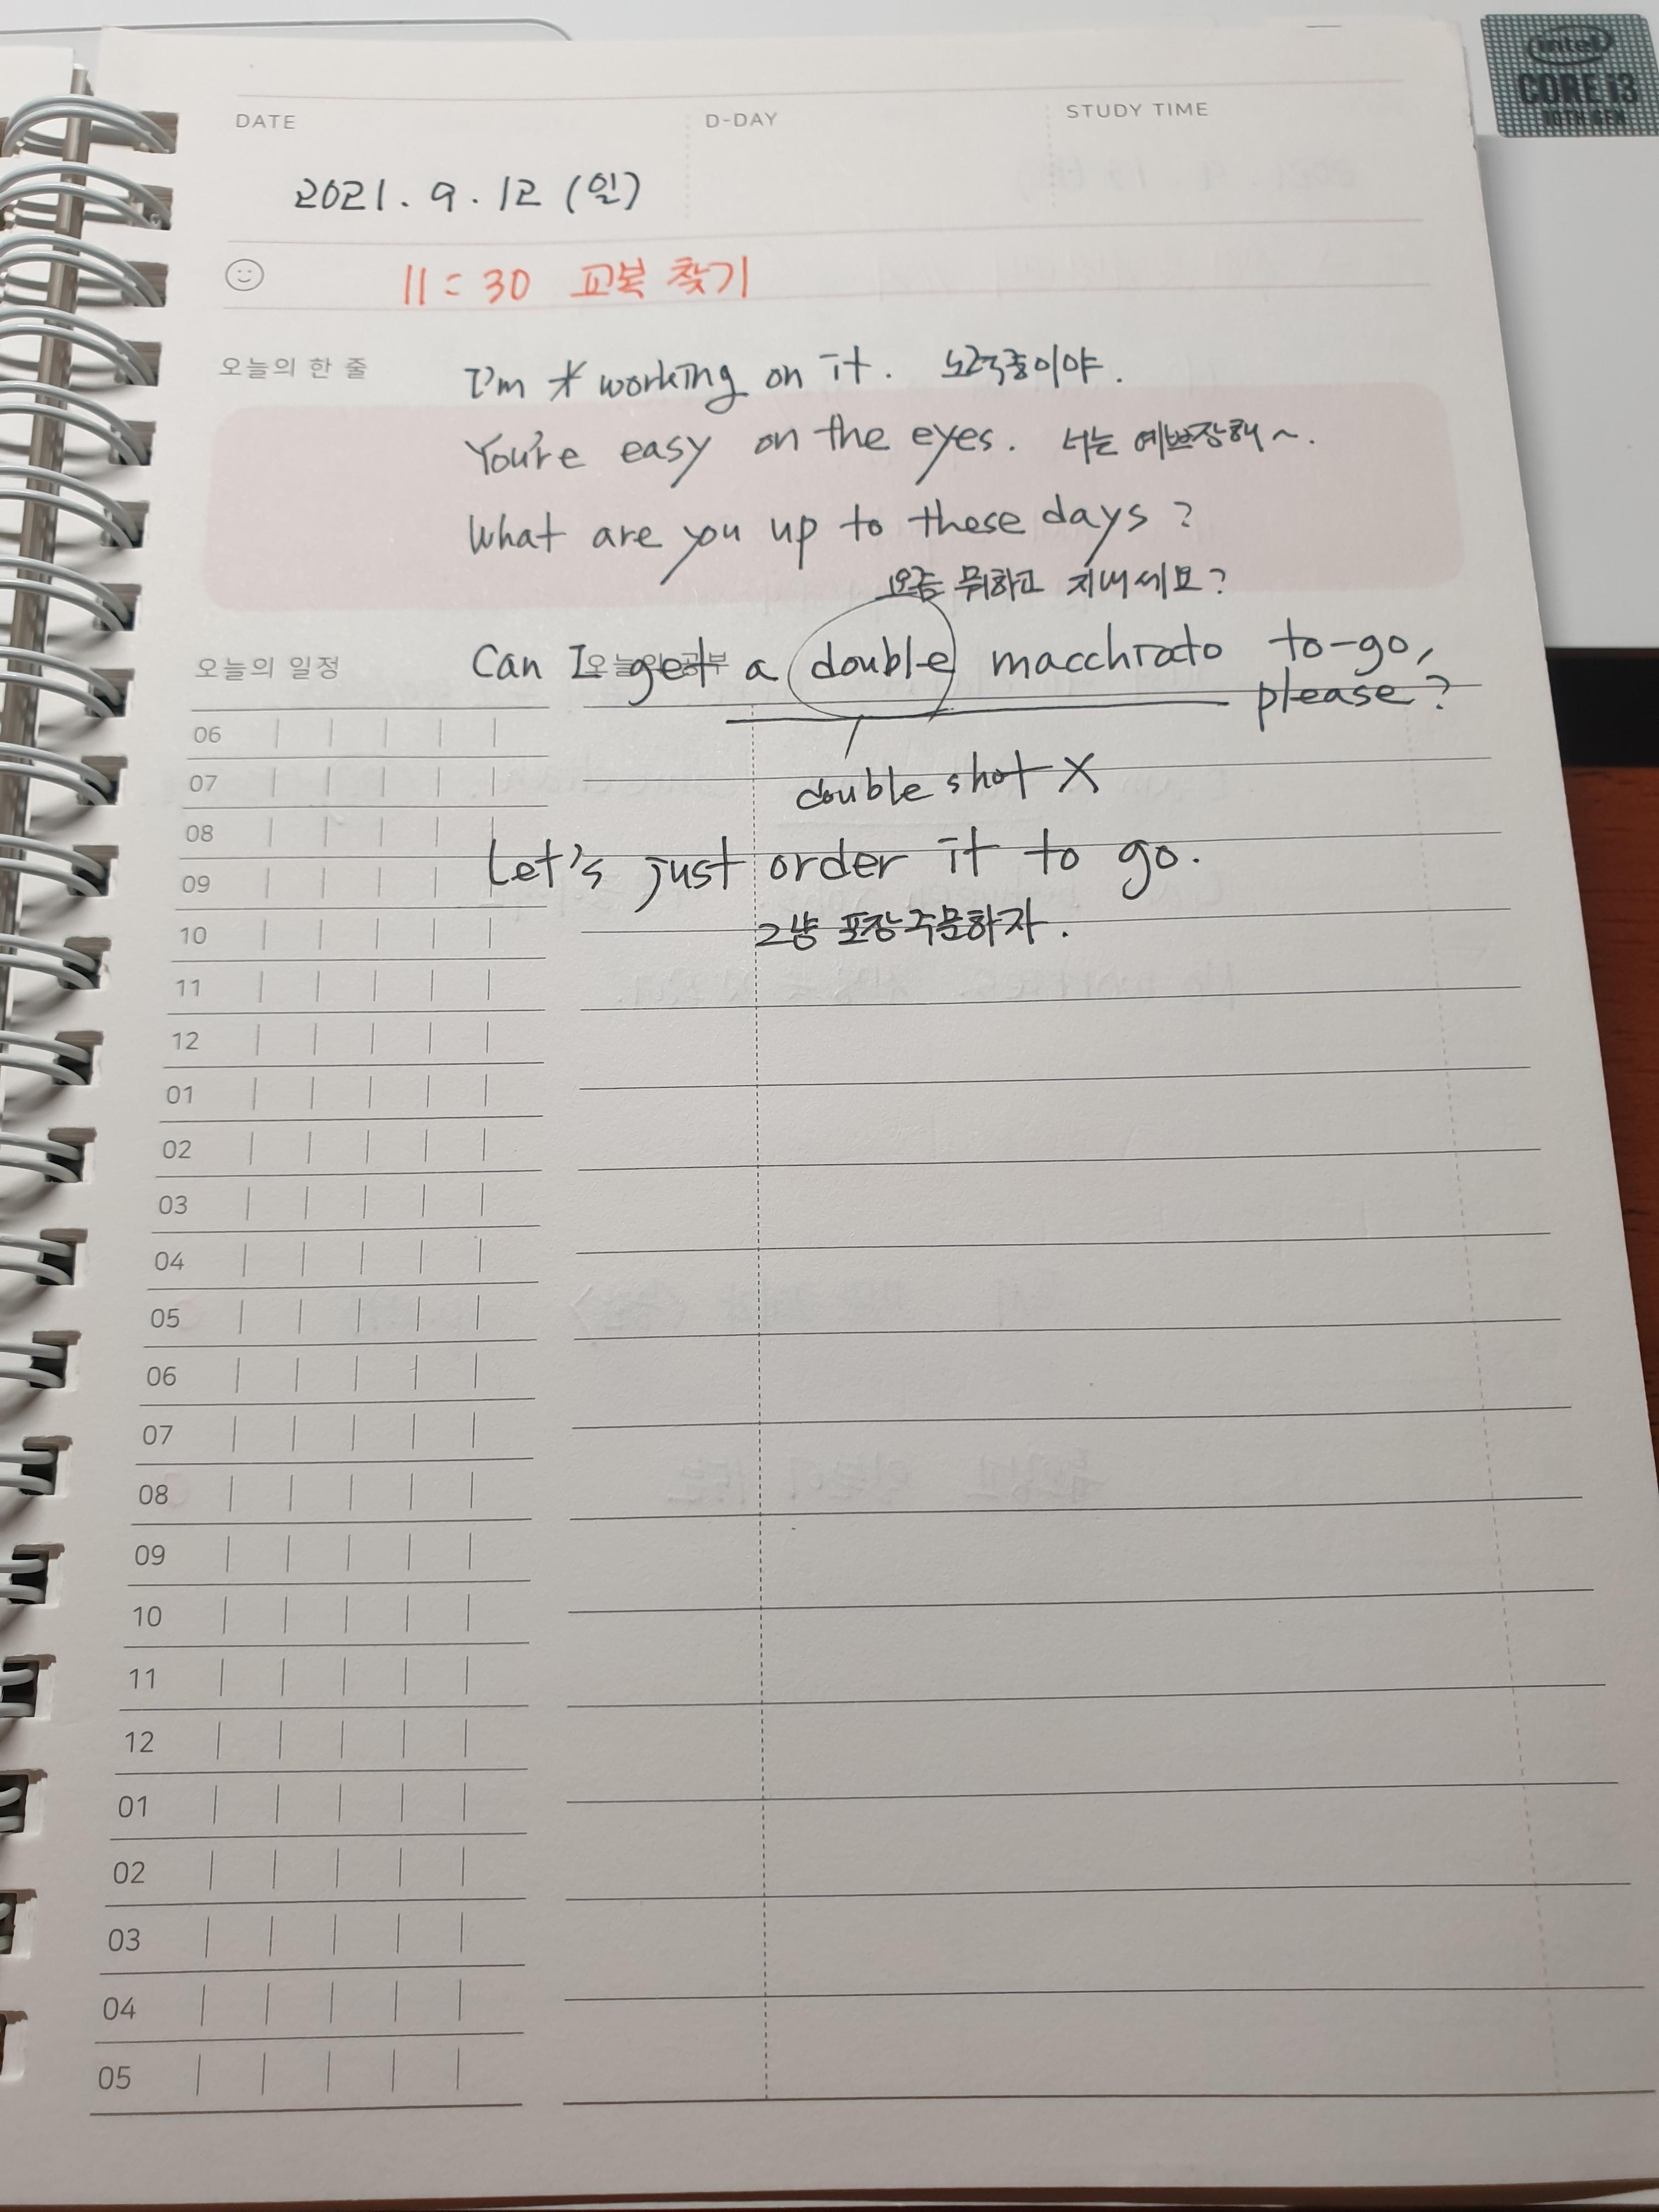 intel
CORE i3
10TH GEN
DATE
D-DAY
STUDY TIME
2021. 9. 12 (일)
11:30 교복 찾기
오늘의 한 줄
I'm working on it. 노력중이야.
You're easy on the eyes. 너는 예쁘장해~.
What are you up to these days?
요즘 뭐하고 지내세요?
오늘의 일정
오늘의 공부
Can I get a double macchiato to-go,
please?
double shot X
Let's just order it to go.
그냥 포장주문하자.
06
07
08
09
10
11
12
01
02
03
04
05
06
07
08
09
10
11
12
01
02
03
04
05